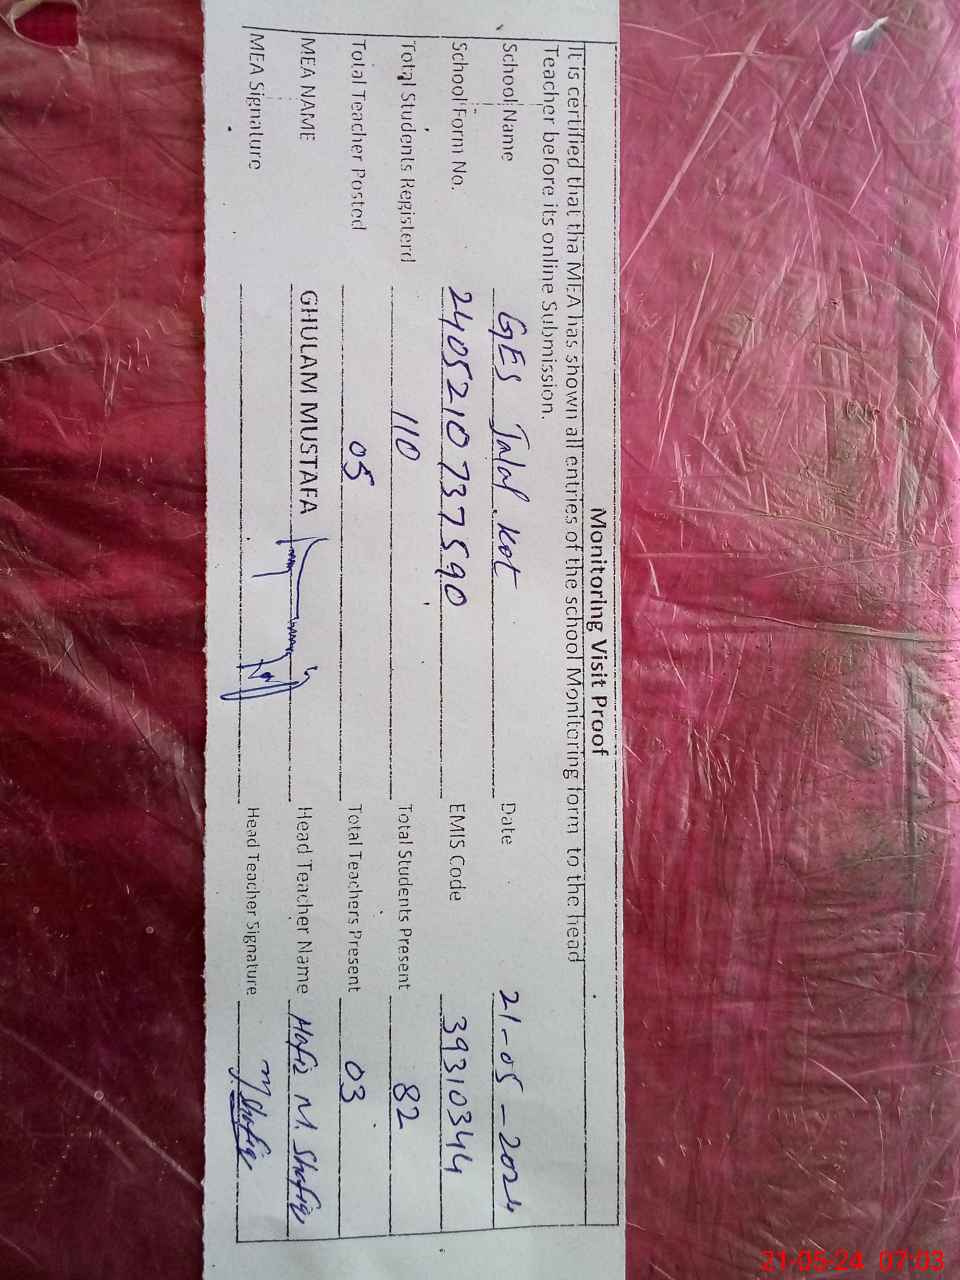 Monitoring Visit Proof
It is certified that tha MEA has shown all entries of the school Monitoring form to the head
Teacher before its online Submission.
School Name GES Jalal Kot Date 21-05-2024
School Form No. 2405210737590 EMIS Code 39310344
Total Students Registerd 110 Total Students Present 82
Total Teacher Posted 05 Total Teachers Present 03
MEA NAME GHULAM MUSTAFA Head Teacher Name Hafiz M. Shafiq
MEA Signature Head Teacher Signature M. Shafiq
21-05-24 07:03